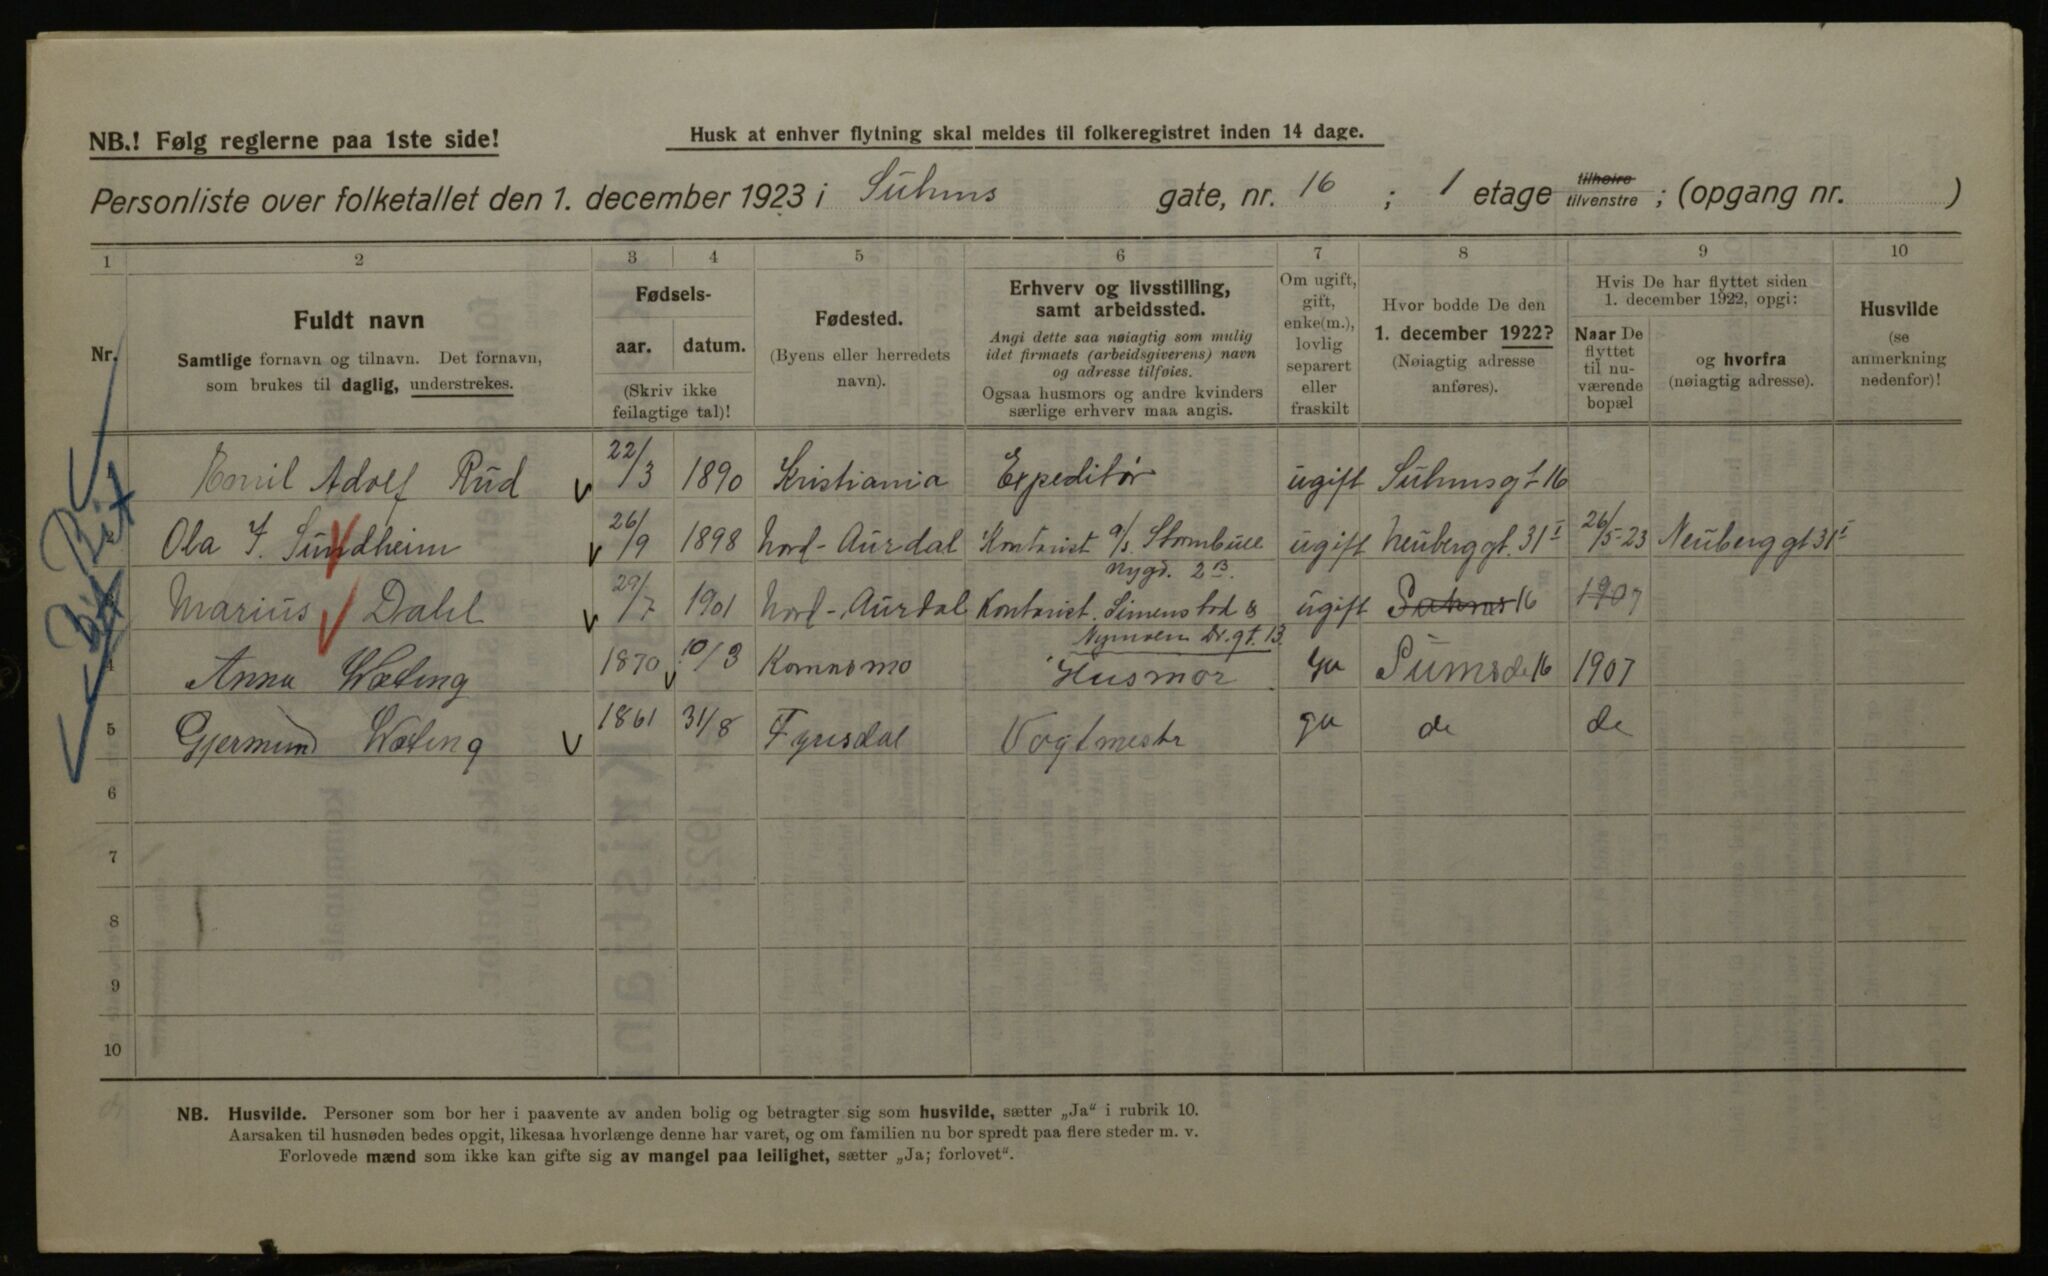 NB.! Følg reglerne paa 1ste side!
Husk at enhver flytning skal meldes til folkeregistret inden 14 dage.
Personliste over folketallet den 1. december 1923 i Suhms gate, nr. 16 ; 1 etage tilhøire tilvenstre ; (opgang nr. )
1 2 3 4 5 6 7 8 9 10
Nr.
Fuldt navn
Samtlige fornavn og tilnavn. Det fornavn,
som brukes til daglig, understrekes.
Fødsels-
aar. datum.
(Skriv ikke
feilagtige tal)!
Fødested.
(Byens eller herredets
navn).
Erhverv og livsstilling,
samt arbeidssted.
Angi dette saa nøiagtig som mulig
idet firmaets (arbeidsgiverens) navn
og adresse tilføies.
Ogsaa husmors og andre kvinders
særlige erhverv maa angis.
Om ugift,
gift,
enke(m.),
lovlig
separert
eller
fraskilt
Hvor bodde De den
1. december 1922?
(Nøiagtig adresse
anføres).
Hvis De har flyttet siden
1. december 1922, opgi:
Naar De
flyttet
til nu-
værende
bopæl
og hvorfra
(nøiagtig adresse).
Husvilde
(se
anmerkning
nedenfor)!
Emil Adolf Rud 22/3 1890 Kristiania Expeditør ugift Suhmsgt 16
2 Ola I. Sundheim 26/9 1898 Nord-Aurdal Kontorist a/s. Stormbull ugift Neuberggt. 31 I 26/5-23 Neuberggt 31 I
Nygd. 2 B.
3 Marius Dahl 29/7 1901 Nord-Aurdal Kontorist. Simenstad & ugift Suhms 16 1907
Nymoen Dr.gt. 13
4 Anna Wæting 1870 10/3 Kornnomo Husmor ga Sumsde 16 1907
5 Gjermund Wæting 1861 31/8 Fyrisdal Vogtmestr ga de de
6
7
8
9
10
NB. Husvilde. Personer som bor her i paavente av anden bolig og betragter sig som husvilde, sætter „Ja“ i rubrik 10.
Aarsaken til husnøden bedes opgit, likesaa hvorlænge denne har varet, og om familien nu bor spredt paa flere steder m. v.
Forlovede mænd som ikke kan gifte sig av mangel paa leilighet, sætter „Ja; forlovet“.